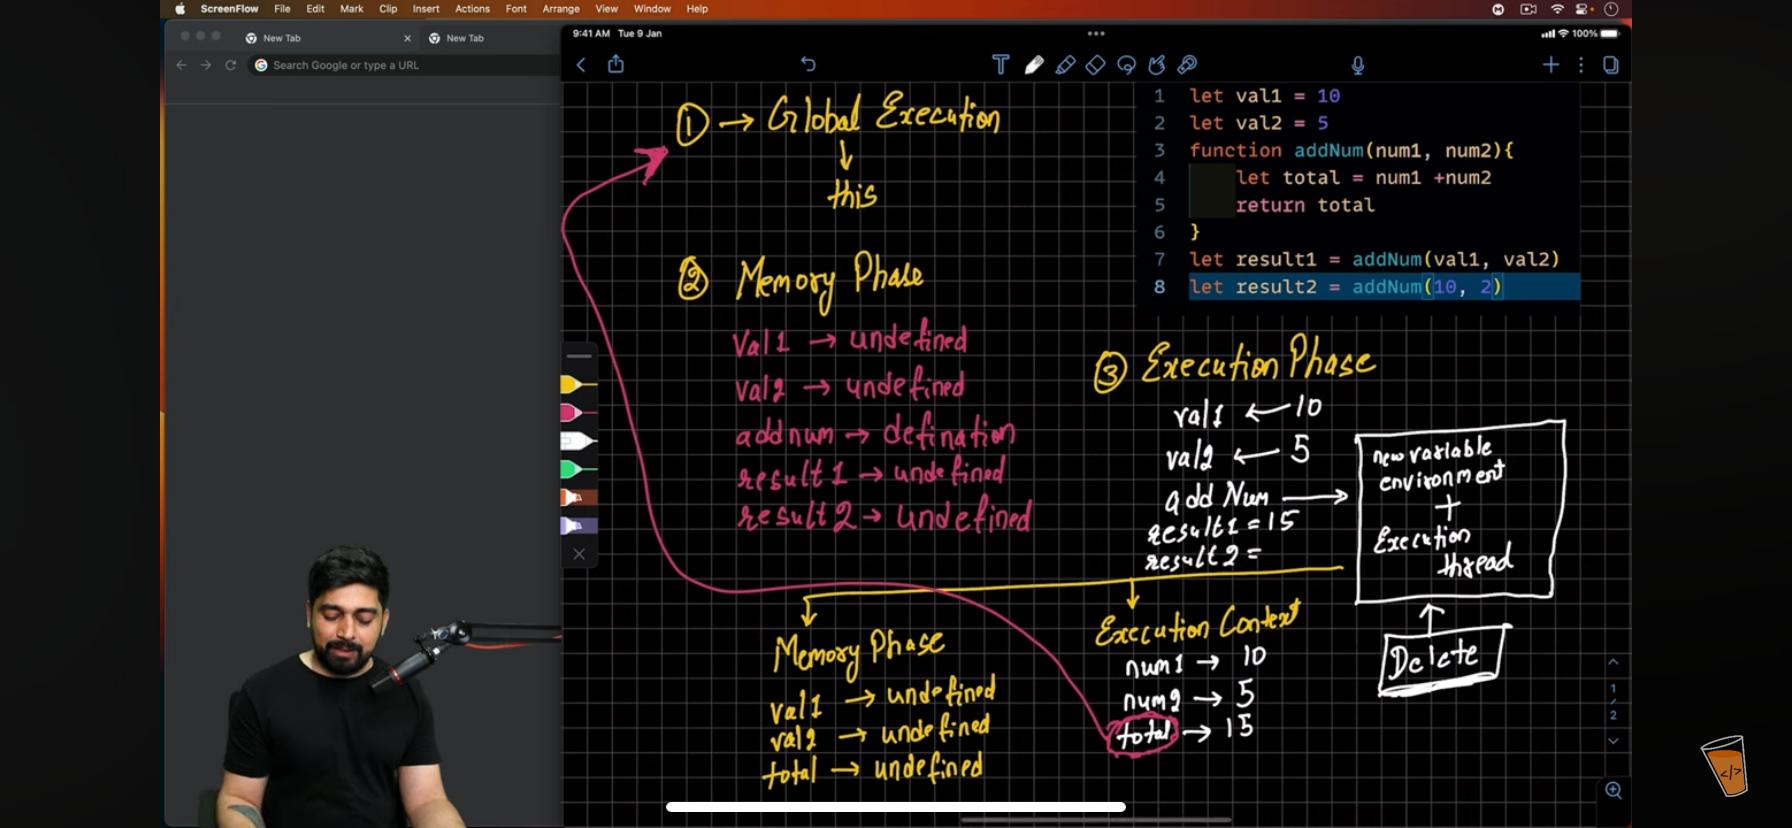 ScreenFlow File Edit Mark Clip Insert Actions Font Arrange View Window Help
New Tab
New Tab
Search Google or type a URL
9:41 AM Tue 9 Jan
100%
① → Global Execution
this
② Memory Phase
Val1 → undefined
val2 → undefined
addnum → defination
result1 → undefined
result2 → undefined
1 let val1 = 10
2 let val2 = 5
3 function addNum(num1, num2){
4 let total = num1 +num2
5 return total
6 }
7 let result1 = addNum(val1, val2)
8 let result2 = addNum(10, 2)
③ Execution Phase
val1 ← 10
val2 ← 5
add Num →
result1 = 15
result2 =
new variable
environment
+
Execution
thread
Delete
Memory Phase
val1 → undefined
val2 → undefined
total → undefined
Execution Context
num1 → 10
num2 → 5
total → 15
1
/
2
</>